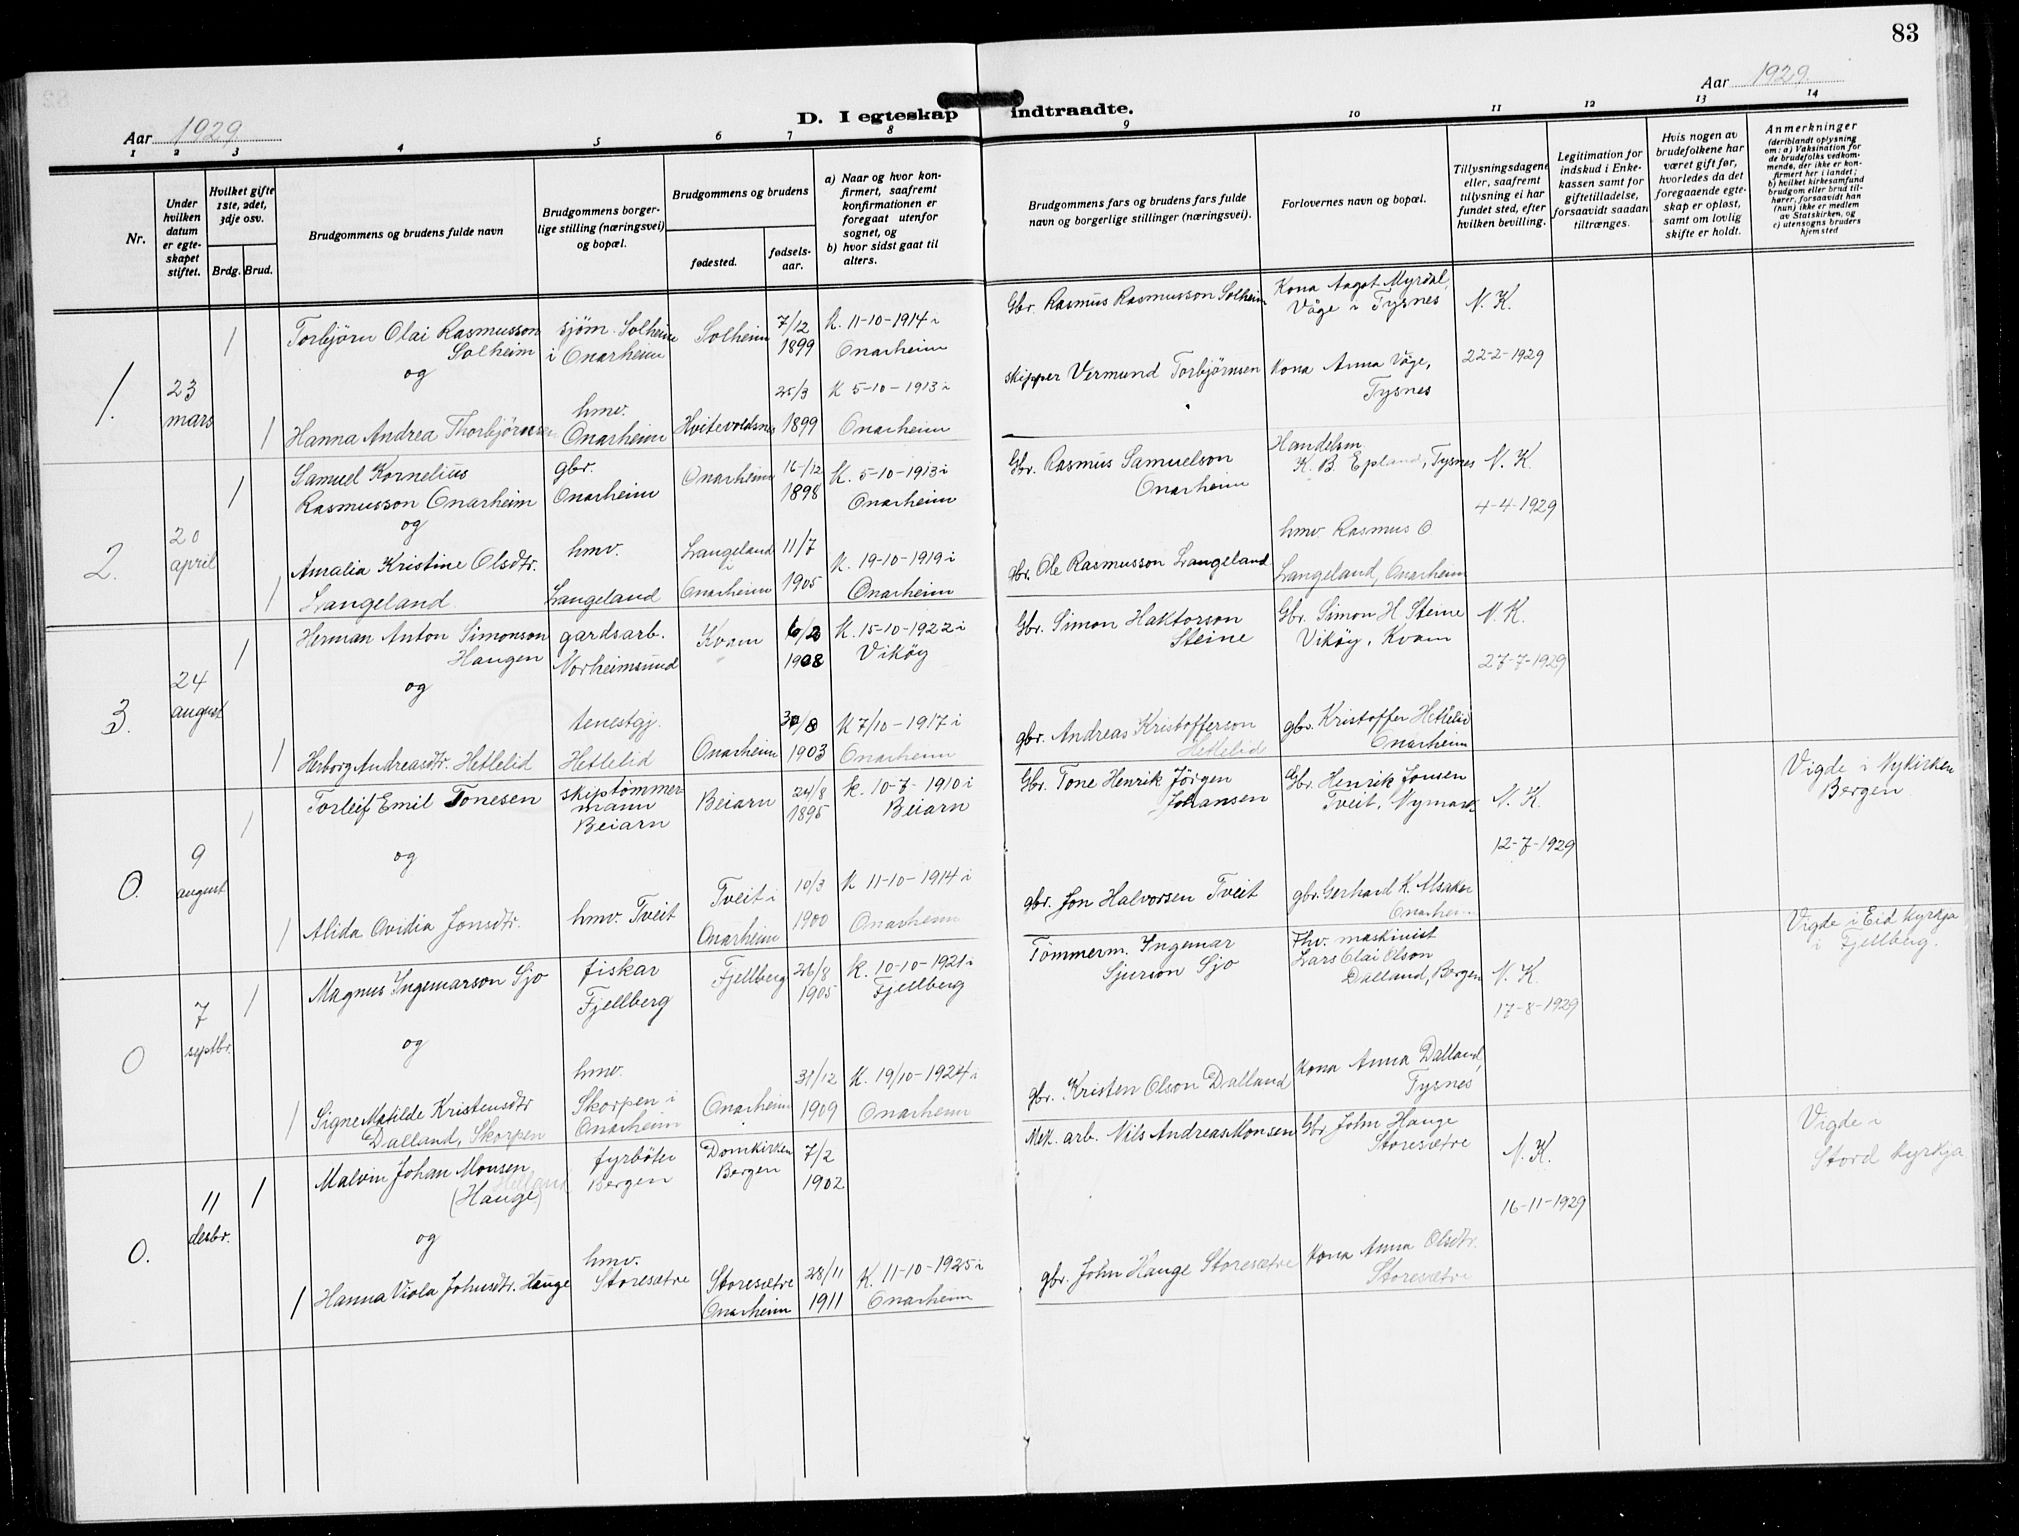 83
Aar 1929
D. I egteskap indtraadte.
Aar 1929
1 2 3 4 5 6 7 8 9 10 11 12 13 14
Nr.
Under hvilken datum er egteskapet stiftet.
Hvilket gifte 1ste, 2det, 3dje osv.
Brdg. Brud.
Brudgommens og brudens fulde navn
Brudgommens borgerlige stilling (næringsvei) og bopæl.
Brudgommens og brudens
fødested.
fødselsaar.
a) Naar og hvor konfirmert, saafremt konfirmationen er foregaat utenfor sognet, og
b) hvor sidst gaat til alters.
Brudgommens fars og brudens fars fulde navn og borgerlige stillinger (næringsvei).
Forlovernes navn og bopæl.
Tillysningsdagene eller, saafremt tillysning ei har fundet sted, efter hvilken bevilling.
Legitimation for indskud i Enkekassen samt for giftetilladelse, forsaavidt saadan tiltrænges.
Hvis nogen av brudefolkene har været gift før, hvorledes da det foregaaende egteskap er opløst, samt om lovlig skifte er holdt.
Anmerkninger
(deriblandt oplysning om: a) Vaksination for de brudefolks vedkommende, der ikke er konfirmert her i landet;
b) hvilket kirkesamfund brudgom eller brud tilhører, forsaavidt han (hun) ikke er medlem av Statskirken, og
c) utensogns bruders hjemsted
1. 23 mars
1 Torbjørn Olai Rasmusson Solheim
sjøm. Solheim i Onarheim
Solheim
7/12 1899
K. 11-10-1914 i Onarheim
Gbr. Rasmus Rasmusson Solheim
Kona Aagot Myrdal, Våge i Tysnes
N. K.
22-2-1929
og
1 Hanna Andrea Thorbjørnsen
hmv. Onarheim
Hvitevoldsnes
25/3 1899
K 5-10-1913 i Onarheim
skipper Vermund Torbjørnsen
Kona Anna Våge, Tysnes
2. 20 april
1 Samuel Kornelius Rasmusson Onarheim
gbr. Onarheim
Onarheim
16/12 1898
K. 5-10-1913 i Onarheim
Gbr. Rasmus Samuelson Onarheim
Handelsm. K. B. Epland, Tysnes
N. K.
4-4-1929
og
1 Amalia Kristine Olsdtr. Langeland
hmv. Langeland
Langeland i Onarheim
11/7 1905
K. 19-10-1919 i Onarheim
gbr. Ole Rasmusson Langeland
hmv. Rasmus O Langeland, Onarheim
3. 24 august
1 Herman Anton Simonson Haugen
gardsarb. Norheimsund
Kvam
6/2 1908
K. 15-10-1922 i Vikøy
Gbr. Simon Haktorson Steine
Gbr. Simon H. Steine Vikøy, Kvam
N. K.
27-7-1929
og
1 Herborg Andreasdtr. Hetlelid
tenestgj. Hetlelid
Onarheim
30/8 1903
K 7/10-1917 i Onarheim
gbr. Andreas Kristofferson Hetlelid
gbr. Kristoffer Hetlelid Onarheim
0. 9 august
1 Torleif Emil Tonesen
skiptømmermann Beiarn
Beiarn
24/8 1895
k. 10-7-1910 i Beiarn
Gbr. Tone Henrik Jørgen Johansen
Gbr. Henrik Jonsen Tveit, Nymark
N. K.
12-7-1929
Vigde i Nykirken Bergen
og
1 Alida Ovidia Jonsdtr.
hmv. Tveit
Tveit i Onarheim
10/3 1900
K 11-10-1914 i Onarheim
gbr. Jon Halvorsen Tveit
gbr. Gerhard K. Alsaker Onarheim
0 7 septbr.
1 Magnus Ingemarson Sjo
fiskar Fjellberg
Fjellberg
26/8 1905
k. 10-10-1921 i Fjellberg
Tømmerm. Ingemar Sjurson Sjo
Fhv. maskinist Lars Olai Olson Dalland, Bergen
N. K.
17-8-1929
Vigde i Eid kyrkja i Fjellberg.
og
1 Signe Matilde Kristensdtr Dalland, Skorpen
hmv. Skorpen i Onarheim
Onarheim
31/12 1909
K. 19/10-1924 i Onarheim
gbr. Kristen Olson Dalland
Kona Anna Dalland, Tysnes
0. 11 desbr.
1 Malvin Johan Monsen Helland (Hauge)
fyrbøter Bergen
Domkirken Bergen
7/2 1902
Mek. arb. Nils Andreas Monsen
Gbr. John Hauge Storesætre
N. K.
16-11-1929
Vigde i Stord kyrkja
og
1 Hanna Viola Johnsdtr. Hauge
hmv. Storesætre
Storesætre Onarheim
28/11 1911
K. 11-10-1925 i Onarheim
gbr. John Hauge Storesætre
Kona Anna Olsdtr. Storesætre